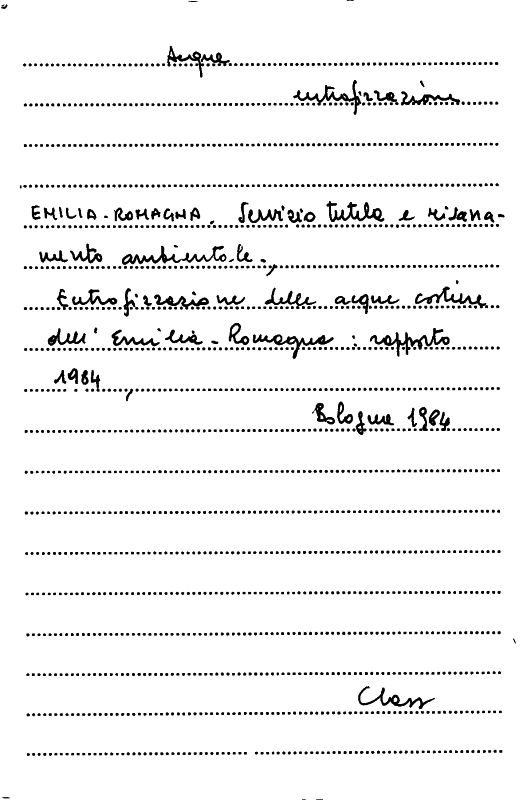 Acque
eutrofizzazione
EMILIA-ROMAGNA. Servizio tutela e risana-
mento ambientale.,
Eutrofizzazione delle acque costiere
dell'Emilia-Romagna : rapporto
1984,
Bologna 1984
Class